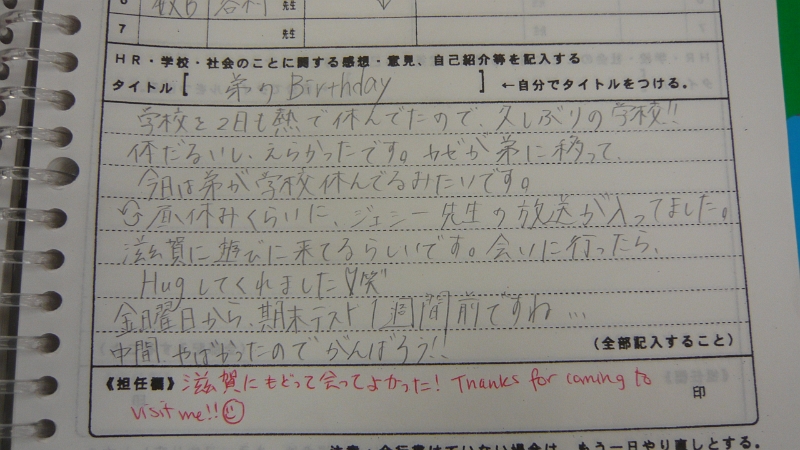 6 数B 谷村 先生
7 先生
HR・学校・社会のことに関する感想・意見、自己紹介等を記入する
タイトル[ 弟のBirthday ] ←自分でタイトルをつける。
学校を2日も熱で休んでたので、久しぶりの学校!!
体だるいし、えらかったです。カゼが弟に移って、
今日は弟が学校休んでるみたいです。
昼休みくらいに、ジェシー先生の放送が入ってました。
滋賀に遊びに来てるらしいです。会いに行ったら、
Hugしてくれました♡笑
金曜日から、期末テスト1週間前ですね…
中間、やばかったのでがんばろう!!
(全部記入すること)
《担任欄》滋賀にもどって会ってよかった! Thanks for coming to
visit me!!☺
印
もう一日やり直しとする。